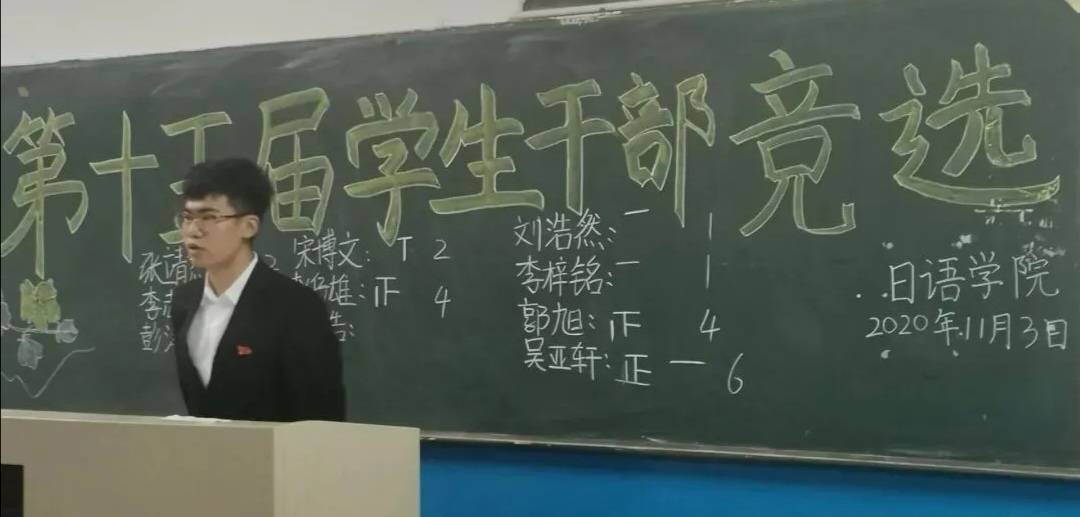 第十 届学生干部竞选
张
李
彭
2
宋博文：丅 2
雄：正 4
浩：
刘浩然：一 1
李梓铭：一 1
郭旭：正 4
吴亚轩：正 一 6
日语学院
2020年11月3日